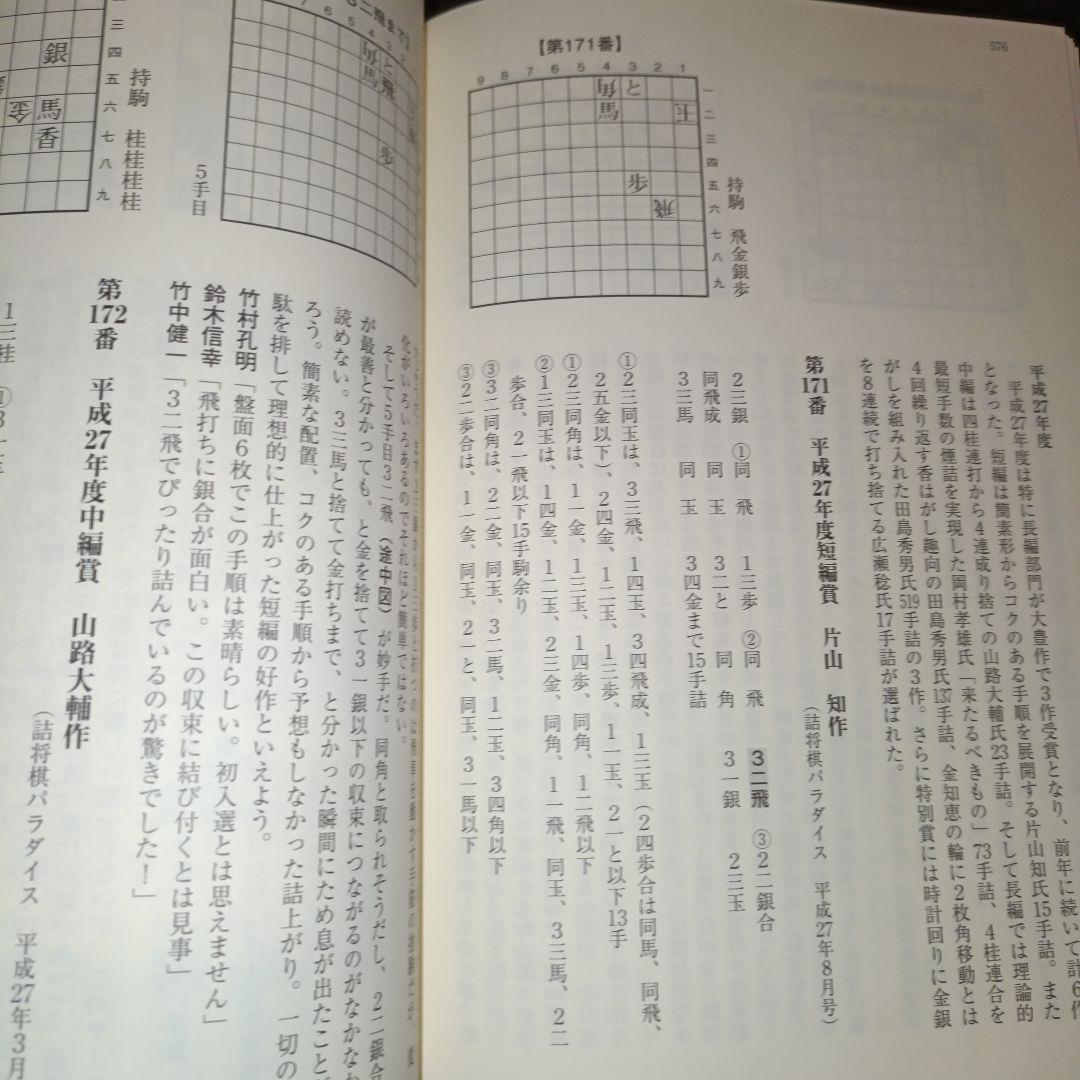 576
平成27年度
平成27年度は特に長編部門が大豊作で3作受賞となり、前年に続いて計6作
となった。短編は簡素形からコクのある手順を展開する片山知氏15手詰。また
中編は四桂連打から4連成り捨ての山路大輔氏23手詰。そして長編では理論的
最短手数の煙詰を実現した岡村孝雄氏「来たるべきもの」73手詰、4桂連合を
4回繰り返す香はがし趣向の田島秀男氏137手詰、金知恵の輪に2枚角移動とは
がしを組み入れた田島秀男氏519手詰の3作。さらに特別賞には時計回りに金銀
を8連続で打ち捨てる広瀬稔氏17手詰が選ばれた。
第171番 平成27年度短編賞 片山 知作
(詰将棋パラダイス 平成27年8月号)
【第171番】
9 8 7 6 5 4 3 2 1
角 と 一
馬 玉 二
三
四
歩 五
飛 六
七
八
九
持駒 飛金銀歩
2三銀 ①同 飛 1三歩 ②同 飛 3二飛 ③2二銀合
同飛成 同 玉 3二と 同 角 3一銀 2三玉
3三馬 同 玉 3四金まで15手詰
①2三同玉は、3三飛、1四玉、3四飛成、1三玉(2四歩合は同馬、同飛、
2五金以下)、2四金、1二玉、1三歩、1一玉、2一と以下13手
①2三同角は、1一金、1三玉、1四歩、同角、1二飛以下
②1三同玉は、1四金、1二玉、2三金、同角、1一飛、同玉、3三馬、2二
歩合、2一飛以下15手駒余り
③3二同角は、2二金、同玉、3二馬、1二玉、3四角以下
③2二歩合は、1一金、同玉、2一と、同玉、3一馬以下
二飛まで】
7 6 5 4 3 2
角 と
馬 飛
歩
5手目
化がいろいろあるのでそれほど簡単ではない。
そして5手目3二飛(途中図)が妙手だ。同角と取られそうだし、2二銀合
が最善と分かっても、と金を捨てて3一銀以下の収束につながるのがなかなか
読めない。3三馬と捨てて金打ちまで、と分かった瞬間にため息が出たことだ
ろう。簡素な配置、コクのある手順から予想もしなかった詰上がり。一切の
駄を排して理想的に仕上がった短編の好作といえよう。
竹村孔明「盤面6枚でこの手順は素晴らしい。初入選とは思えません」
鈴木信幸「飛打ちに銀合が面白い。この収束に結び付くとは見事」
竹中健一「3二飛でぴったり詰んでいるのが驚きでした！」
第172番 平成27年度中編賞 山路大輔作
(詰将棋パラダイス 平成27年3月
三
銀 四
五
馬 六
香 七
八
九
持駒 桂桂桂桂
1三桂